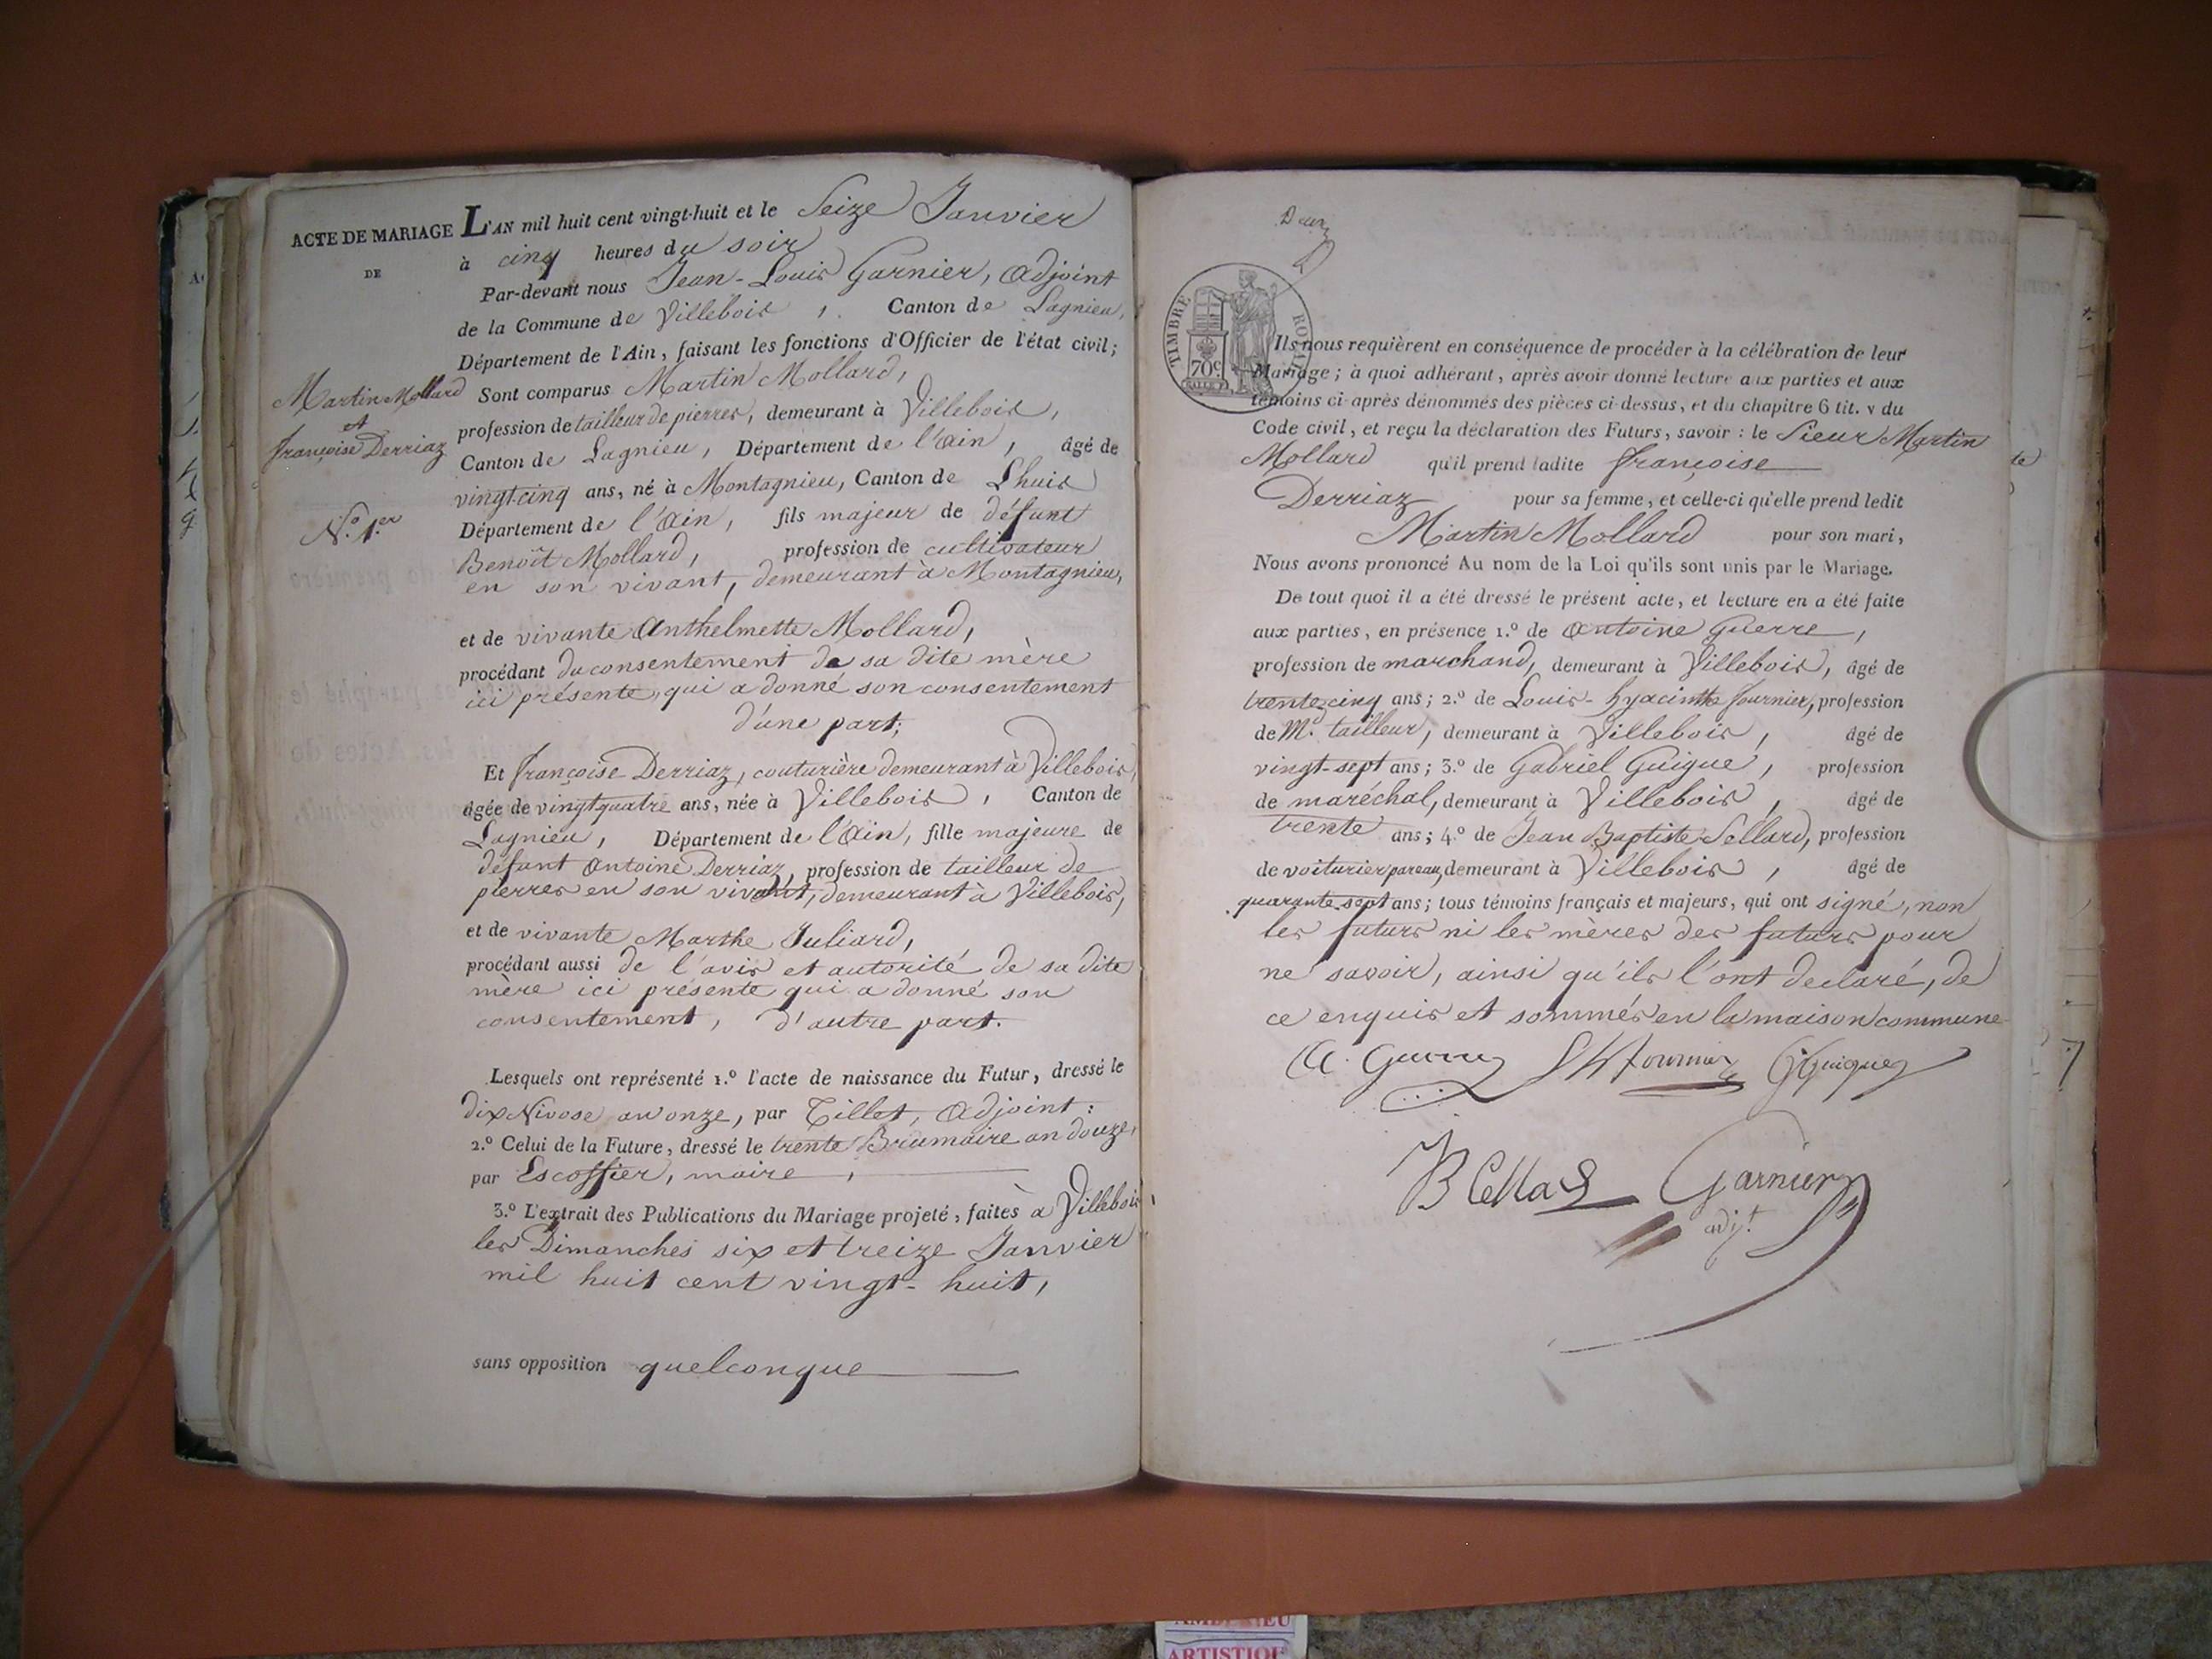 ACTE DE MARIAGE
DE
Martin Mollard
et
françoise Derriaz
N.º 1.er
L'AN mil huit cent vingt-huit et le Seize Janvier
à cinq heures du soir
Par-devant nous Jean-Louis Garnier, Adjoint
de la Commune de Villebois, Canton de Lagnieu,
Département de l'Ain, faisant les fonctions d'Officier de l'état civil;
Sont comparus Martin Mollard,
profession de tailleur de pierres, demeurant à Villebois,
Canton de Lagnieu, Département de l'ain, âgé de
vingt-cinq ans, né à Montagnieu, Canton de Lhuis
Département de l'Ain, fils majeur de défunt
Benoît Mollard, profession de cultivateur
en son vivant, demeurant à Montagnieu,
et de vivante Anthelmette Mollard,
procédant du consentement de sa dite mère
ici présente, qui a donné son consentement
d'une part;
Et françoise Derriaz, couturière demeurant à Villebois,
âgée de vingt quatre ans, née à Villebois, Canton de
Lagnieu, Département de l'Ain, fille majeure de
défunt Antoine Derriaz, profession de tailleur de
pierres en son vivant, demeurant à Villebois,
et de vivante Marthe Juliard,
procédant aussi de l'avis et autorité de sa dite
mère ici présente qui a donné son
consentement, d'autre part.
Lesquels ont représenté 1.º l'acte de naissance du Futur, dressé le
dix Nivose an onze, par Tillet, Adjoint:
2.º Celui de la Future, dressé le trente Brumaire an douze,
par Escoffier, maire,
3.º L'extrait des Publications du Mariage projeté, faites à Villebois,
les Dimanches six et treize Janvier
mil huit cent vingt-huit,
sans opposition quelconque
TIMBRE ROYAL
70c
Ils nous requièrent en conséquence de procéder à la célébration de leur
Mariage; à quoi adhérant, après avoir donné lecture aux parties et aux
témoins ci-après dénommés des pièces ci-dessus, et du chapitre 6 tit. v du
Code civil, et reçu la déclaration des Futurs, savoir: le Sieur Martin
Mollard qu'il prend ladite françoise
Derriaz pour sa femme, et celle-ci qu'elle prend ledit
Martin Mollard pour son mari,
Nous avons prononcé Au nom de la Loi qu'ils sont unis par le Mariage.
De tout quoi il a été dressé le présent acte, et lecture en a été faite
aux parties, en présence 1.º de Antoine Guerre,
profession de marchand, demeurant à Villebois, âgé de
trente cinq ans; 2.º de Louis-hyacinthe fournier, profession
de Md. tailleur, demeurant à Villebois, âgé de
vingt-sept ans; 3.º de Gabriel Guigue, profession
de maréchal, demeurant à Villebois, âgé de
trente ans; 4.º de Jean Baptiste Sellard, profession
de voiturier par eau, demeurant à Villebois, âgé de
quarante-sept ans; tous témoins français et majeurs, qui ont signé, non
les futurs ni les mères des futurs pour
ne savoir, ainsi qu'ils l'ont declaré, de
ce enquis et sommés en la maison commune
A. Guerre LH fournier G Guigue
Garnier
adjt.
ARTISTIQUE